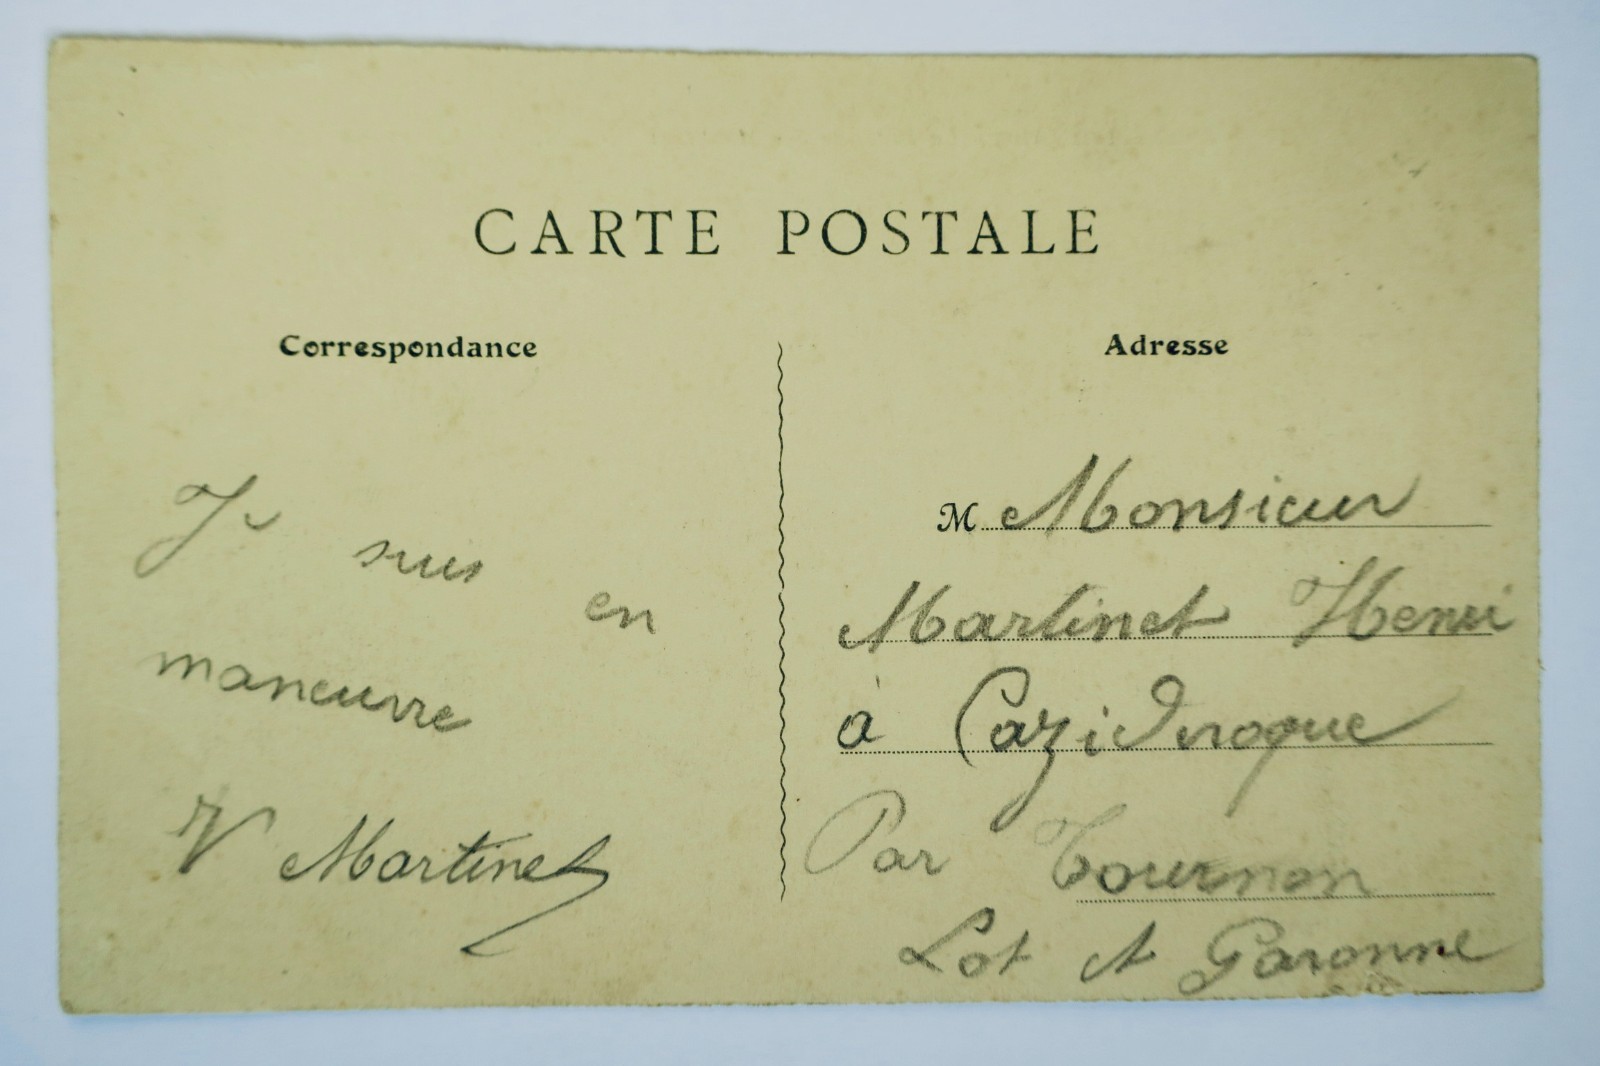 CARTE POSTALE
Correspondance
Je suis en
maneuvre
V Martinet
Adresse
M Monsieur
Martinet Henri
à Cazideroque
Par Tournon
Lot et Garonne